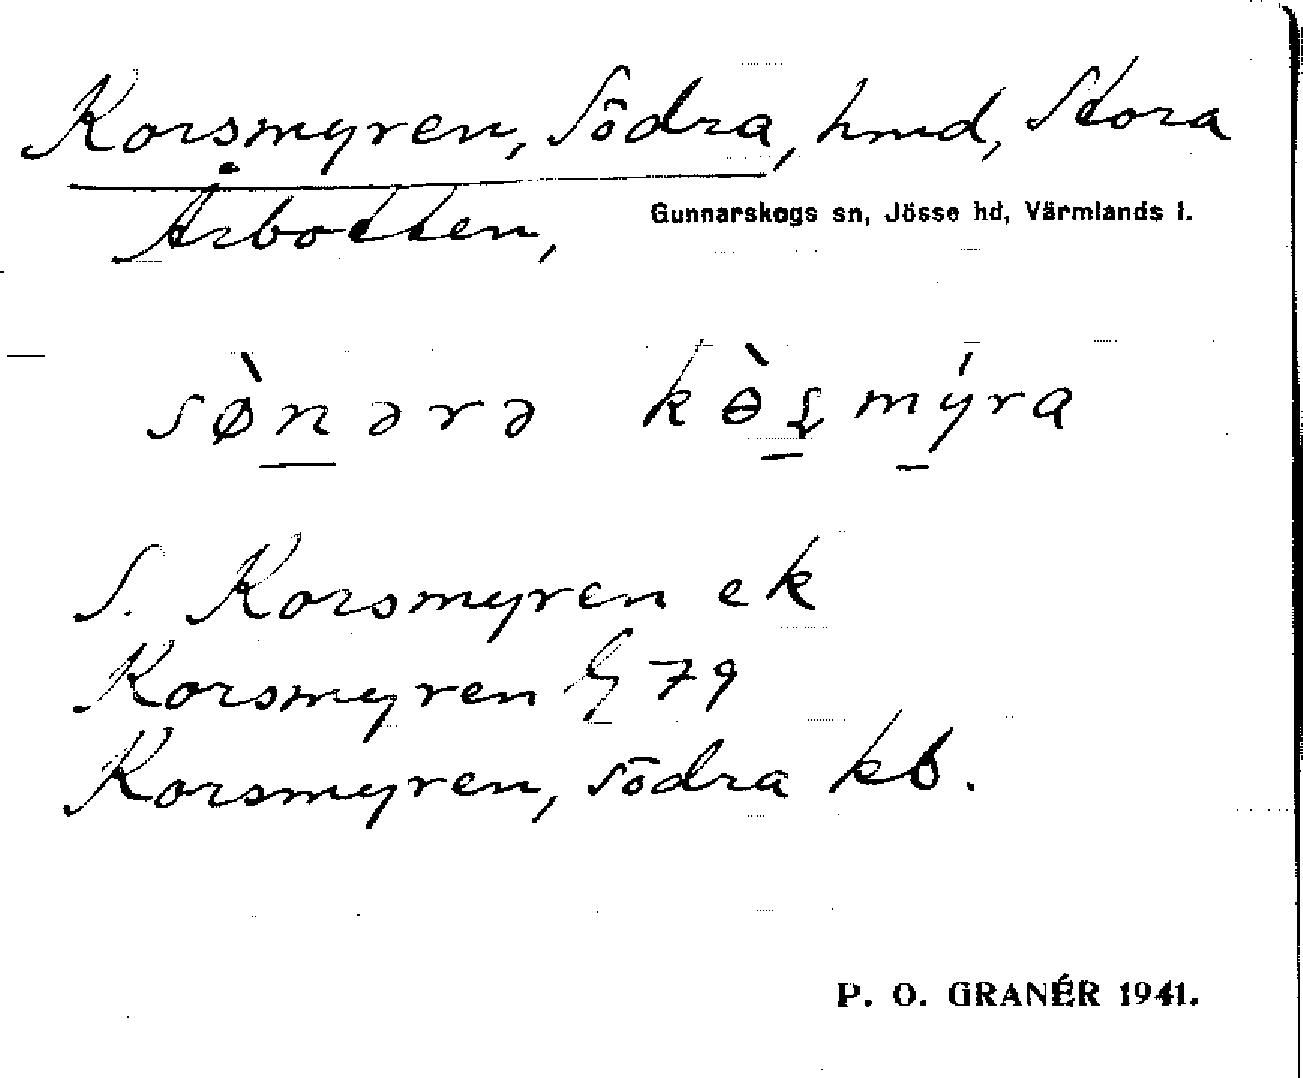 Korsmyren, Södra, hmd, Stora
Årbotten,
Gunnarskogs sn, Jösse hd, Värmlands l.
sø̀nərə kɵ̀ʂmýra
S. Korsmyren ek
Korsmyren 79
Korsmyren, södra kb.
P. O. GRANÉR 1941.